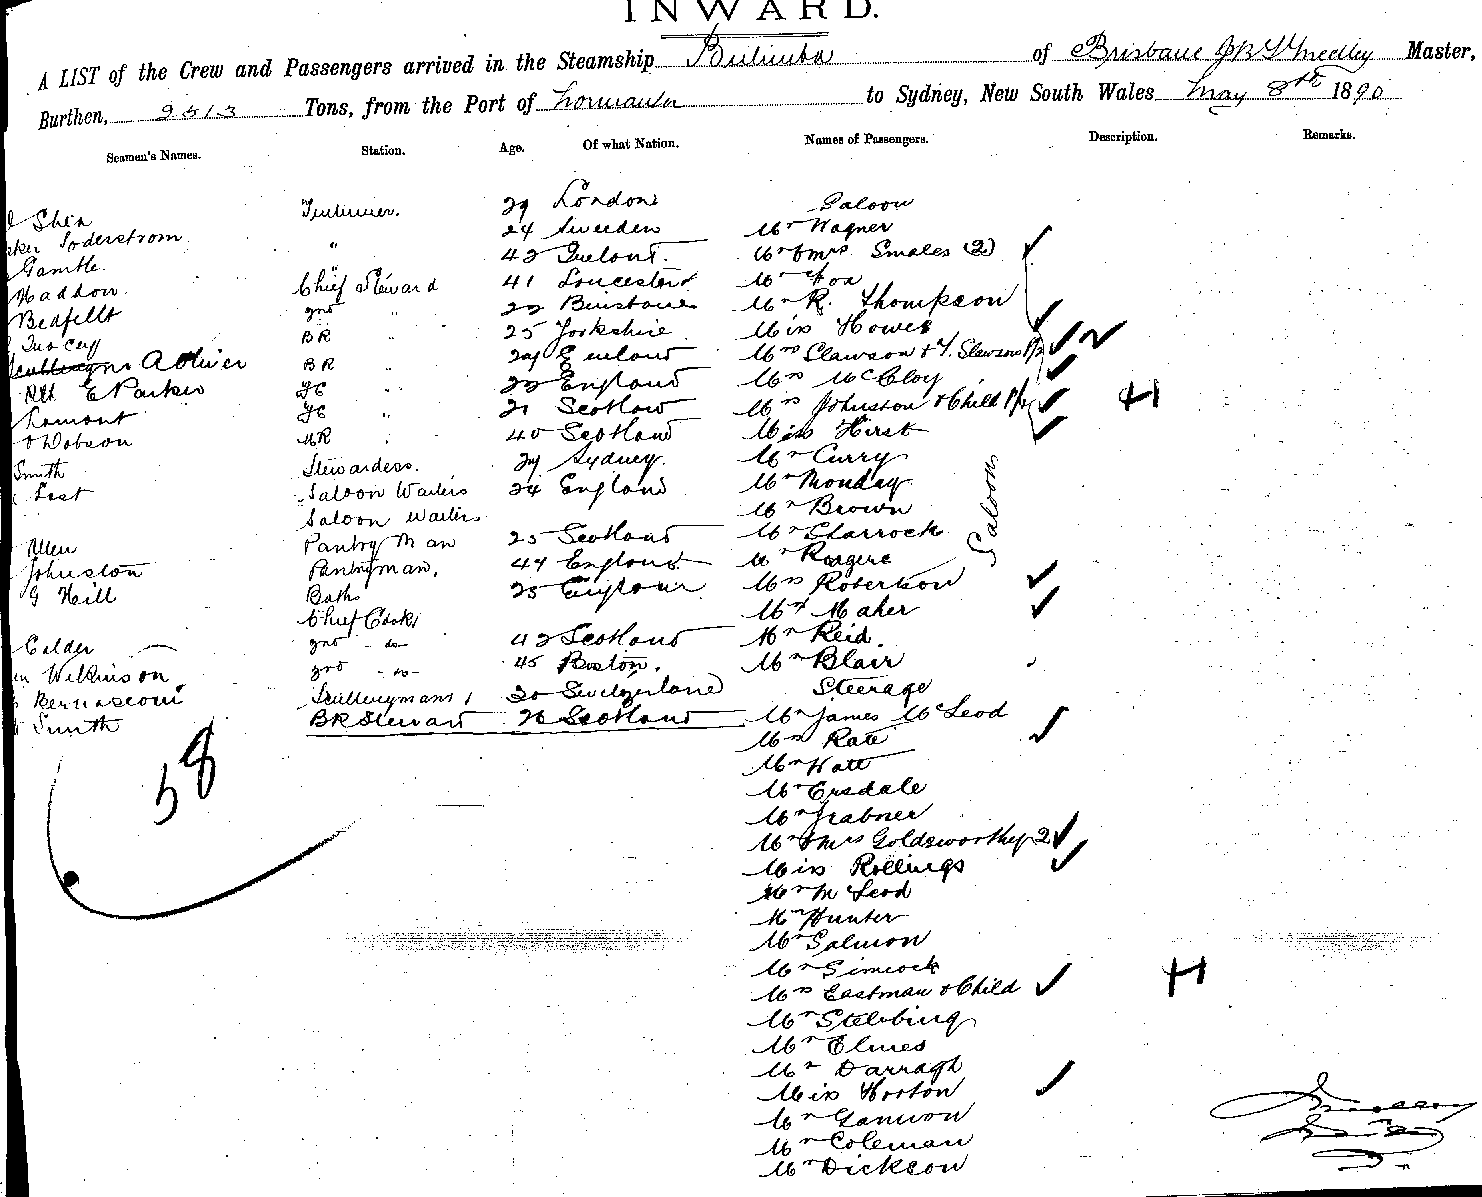 INWARD.
A LIST of the Crew and Passengers arrived in the Steamship Bulimba of Brisbane Smedley Master,
Burthen, 2513 Tons, from the Port of Normanton to Sydney, New South Wales May 8th 1890
Seamen's Names. Station. Age. Of what Nation. Names of Passengers. Description. Remarks.
Shea Trimmer. 29 London Saloon
Soderstrom " 24 Sweden Mr Wagner
Gamble " 42 Mr & Mrs Smales (2)
Haddon Chief Steward 41 Mr Fox
Bedfellt 2nd " 22 Brisbane Mr R. Thompson
BR " 25 Yorkshire Miss Howes
BR " 24 Mrs Slawson & F. Slawson 1/2
E Parker " 22 England Mrs McCloy
Lamont " 21 Scotland Mrs Johnston & Child 1/2 H
Dobson MR " 40 Scotland Miss Hirst
Smith Stewardess. 24 Sydney. Mr Curry
Last Saloon Waiters 24 England Mr Monday
Saloon Waiters Mr Brown
Allen Pantry Man 25 Scotland Mr Sharrock
Johnston Pantryman. 44 England Mr Rogers
G Hill Baths 25 England Mrs Robertson
Chief Cook Mrs Maher
Calder 2nd -do- 42 Scotland Mr Reid
Wilkinson 2nd -do- 45 Boston. Mr Blair
Bernasconi Scullerymans 20 Switzerland Steerage
Smith BR Steward 26 Scotland Mr James McLeod
Saloon
58
Mrs Rate
Mr Watt
Mr Ersdale
Mr Grabner
Mr & Mrs Goldsworthy 2
Miss Rollings
Mr McLeod
Mr Hunter
Mr Salmon
Mr Simcock
Mrs Eastman & Child H
Mr Stebbing
Mr Elmes
Mr Darragh
Miss Horton
Mr Gannon
Mr Coleman
Mr Dickson